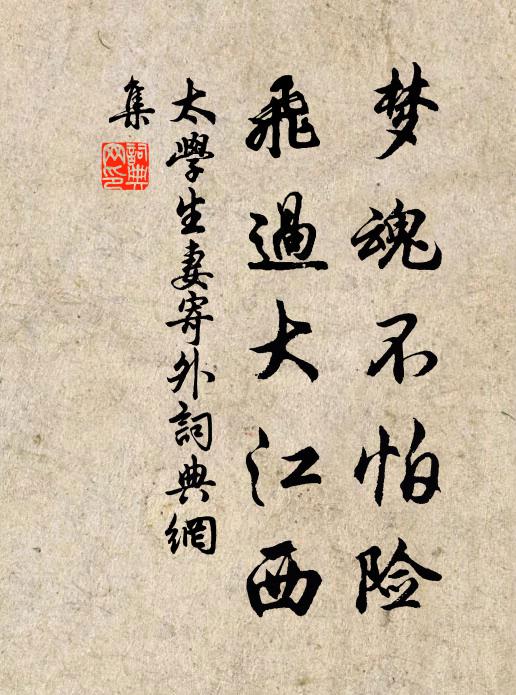 梦魂不怕险
飛過大江西
太學生妻寄外詞典網
集
詞典網印